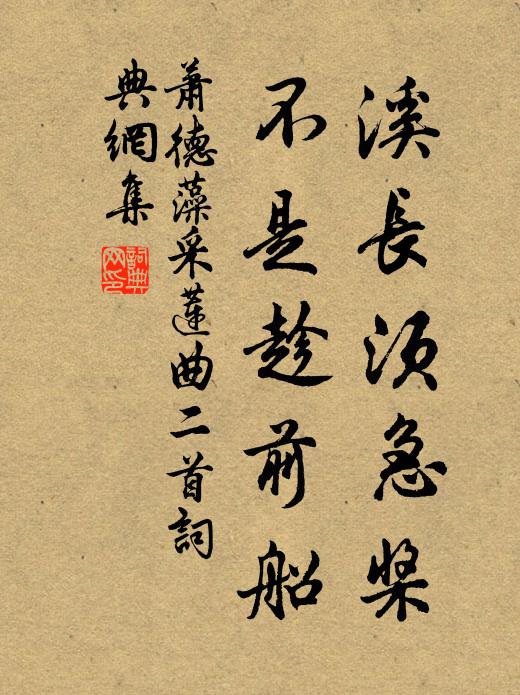 溪長須急槳
不是趁前船
蕭德藻采蓮曲二首詞
典網集
詞典網印